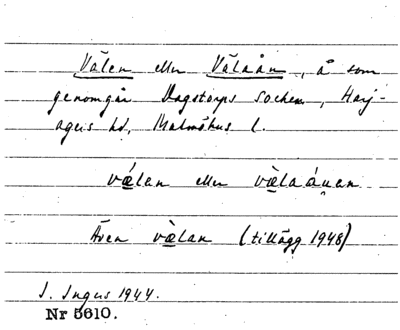 Välen eller Välaån, å som
genomgår Dagstorps socken, Harj-
agers hd, Malmöhus l.
vǽlan eller væ̀laá̯nan
Även væ̀lan (tillägg 1948)
J. Ingers 1944.
Nr 5610.